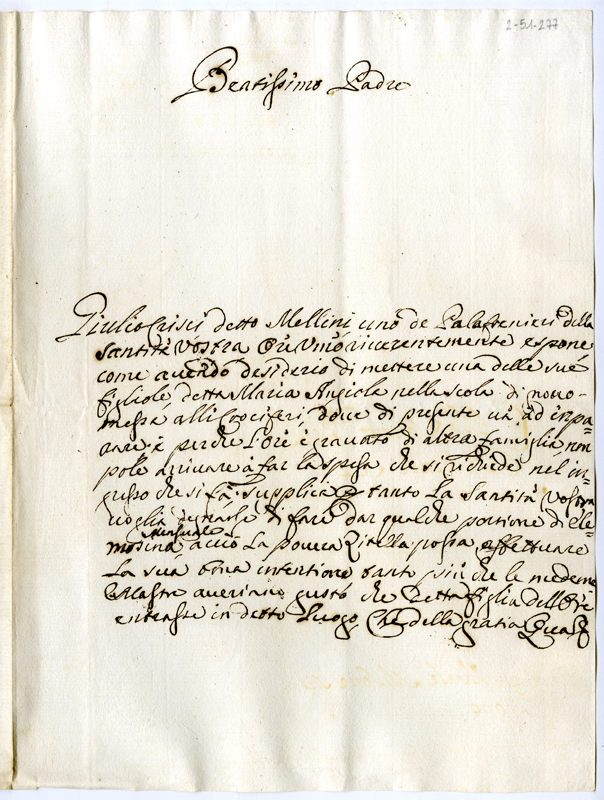 2-51-277
Beatissimo Padre
Giulio Crisci detto Mellini uno de Palafrenieri della
Santità Vostra Ore Umo riverentemente espone
come avendo desiderio di mettere una delle sue
figliole detta Maria Angiola nella scola di novo
messa alli Crociferi, dove di presente va ad inpa=
rare, e perche l'Ore è gravato di altra famiglia, non
pole arrivare à far la spesa che si richiede nel in=
gresso che si fà, supplica tanto La Santità Vostra
voglia degnarse di fare dar qualche portione di ele=
mensuale
mosina, acciò La povera Zitella possa effettuare
La sua bona intentione tanto più che le medeme
Maestre averiano gusto che detta figlia dell'Ore
entrasse in detto Luogo, Che della gratia